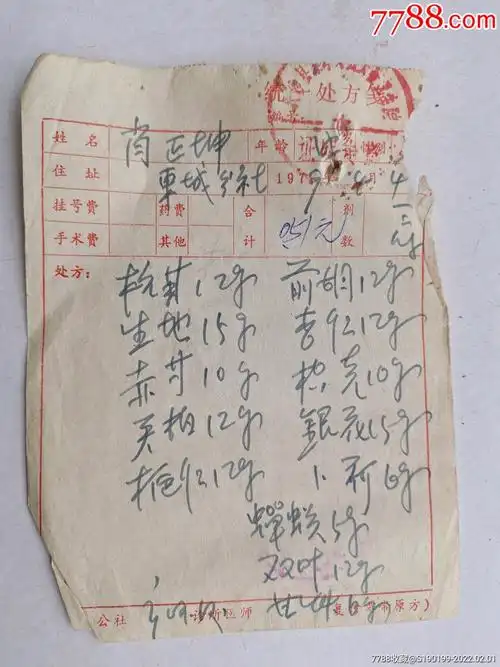 7788.com
统一处方笺
姓名 肖正坤 年龄 性别
住址 東城公社 197 年 月
挂号费 药费 合计 0.51元 剂数
手术费 其他
处方: 杭菊12g 前胡12g
生地15g 杏仁12g
赤芍10g 枳壳10g
黄柏12g 銀花15g
桃仁12g 卜荷6g
蟬蜕5g
双叶12g
公社 诊断医师 复诊带原方)
7788收藏@S190199-2022.02.01